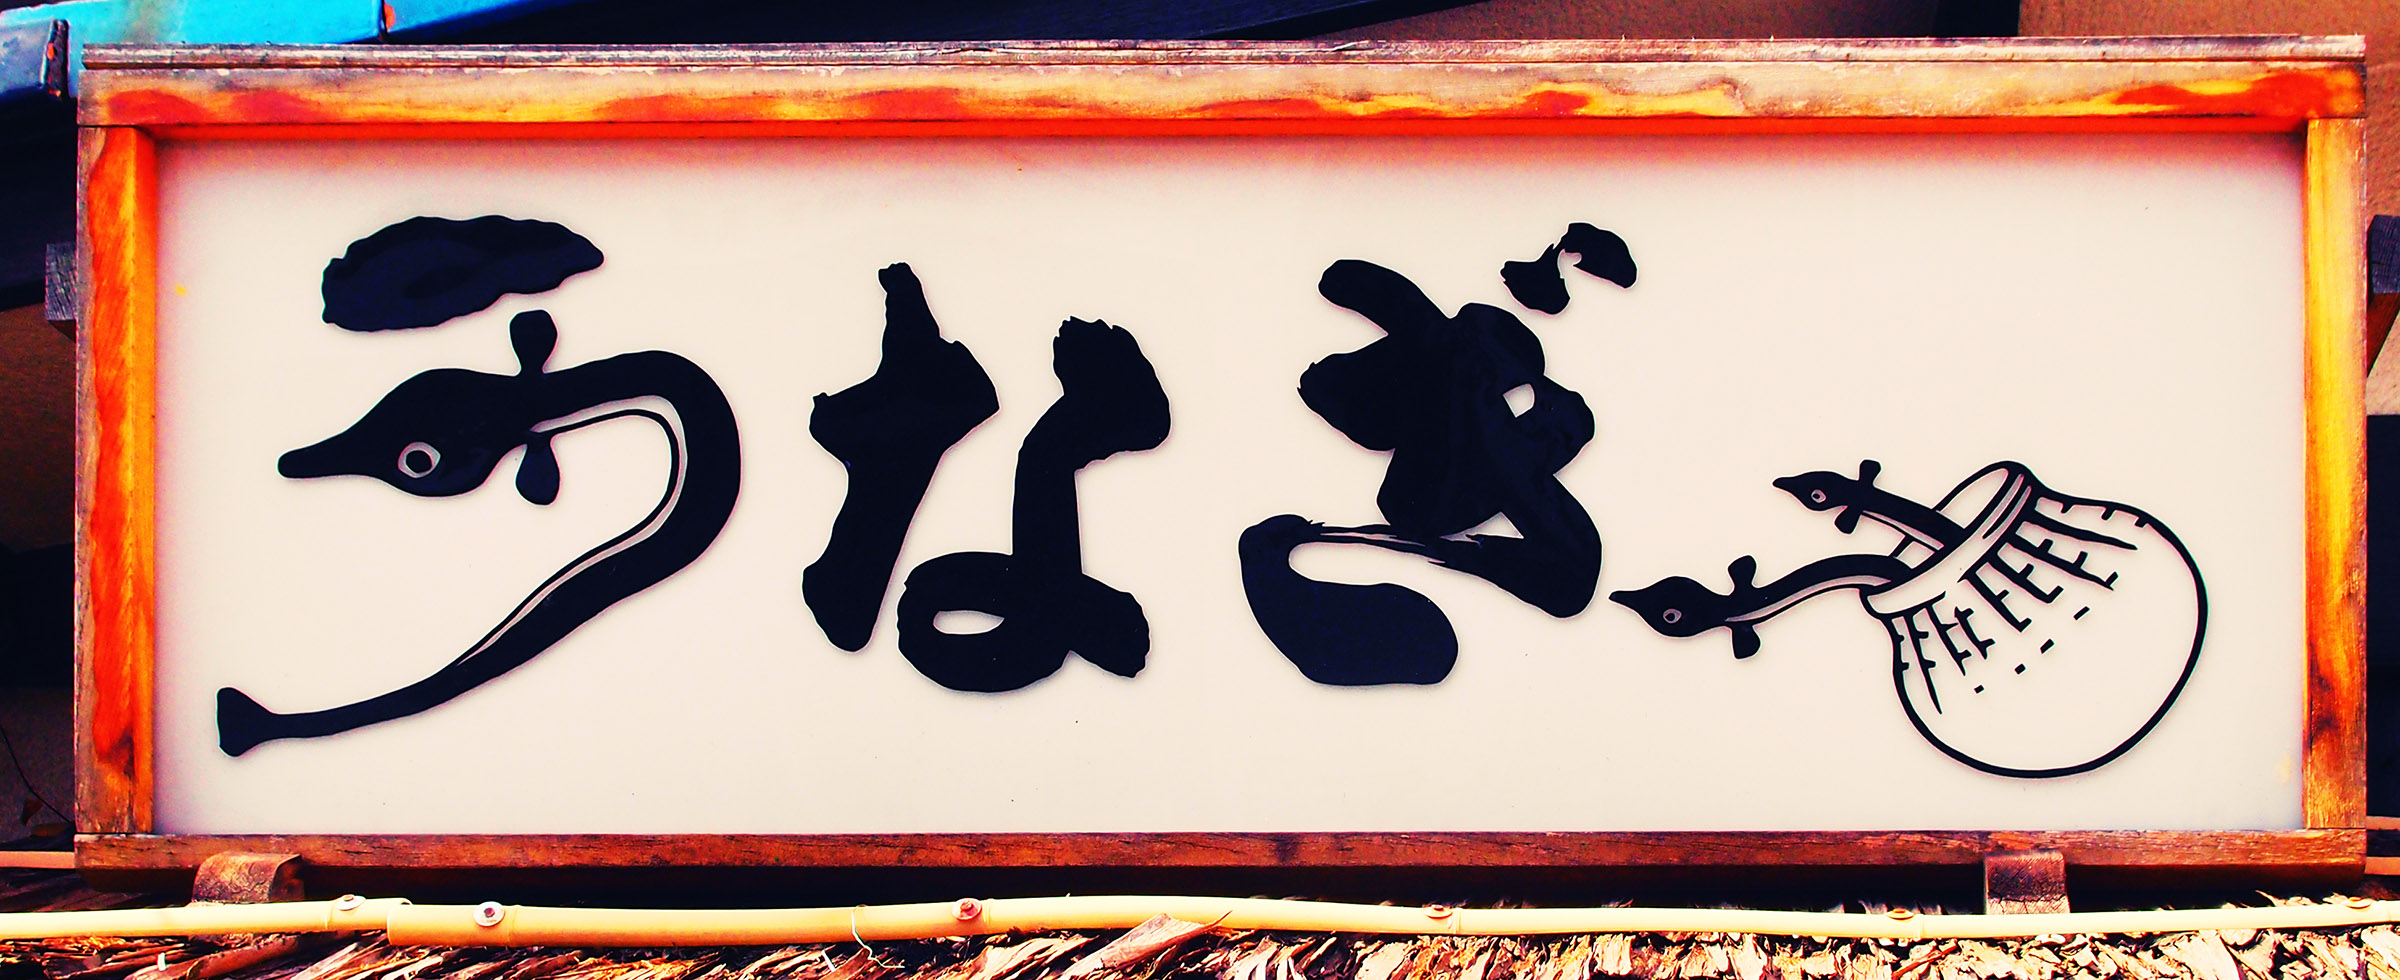 うなぎ